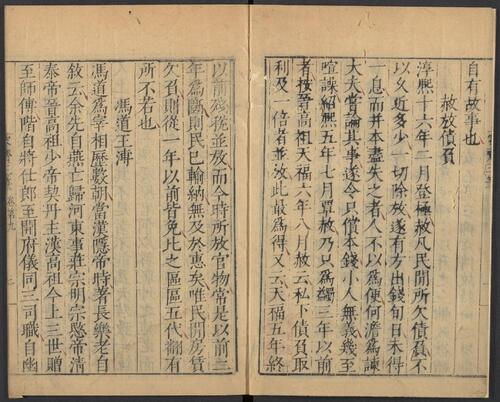 自有故事也
赦放債負
淳熙十六年二月登極赦凡民間所欠債負不
以久近多少一切除放遂有方出錢旬日未得
一息而并本盡失之者人不以為便何澹為諫
大夫嘗論其事遂令只償本錢小人無義幾至
喧譟紹熙五年七月覃赦乃只為蠲三年以前
者按晉高祖天福六年八月赦云私下債負取
利及一倍者並放此最為得又云天福五年終
以前殘稅並放而今時所放官物常是以前三
年為斷則民已輸納無及於惠矣唯民間房賃
欠負則從一年以前皆免比之區區五代翻有
所不若也
馮道王溥
馮道為宰相歷數朝當漢隱帝時著長樂老自
敘云余先自燕亡歸河東事莊宗明宗愍帝清
泰帝晉高祖少帝契丹主漢高祖今上三世贈
至師傅階自將仕郎至開府儀同三司職自幽